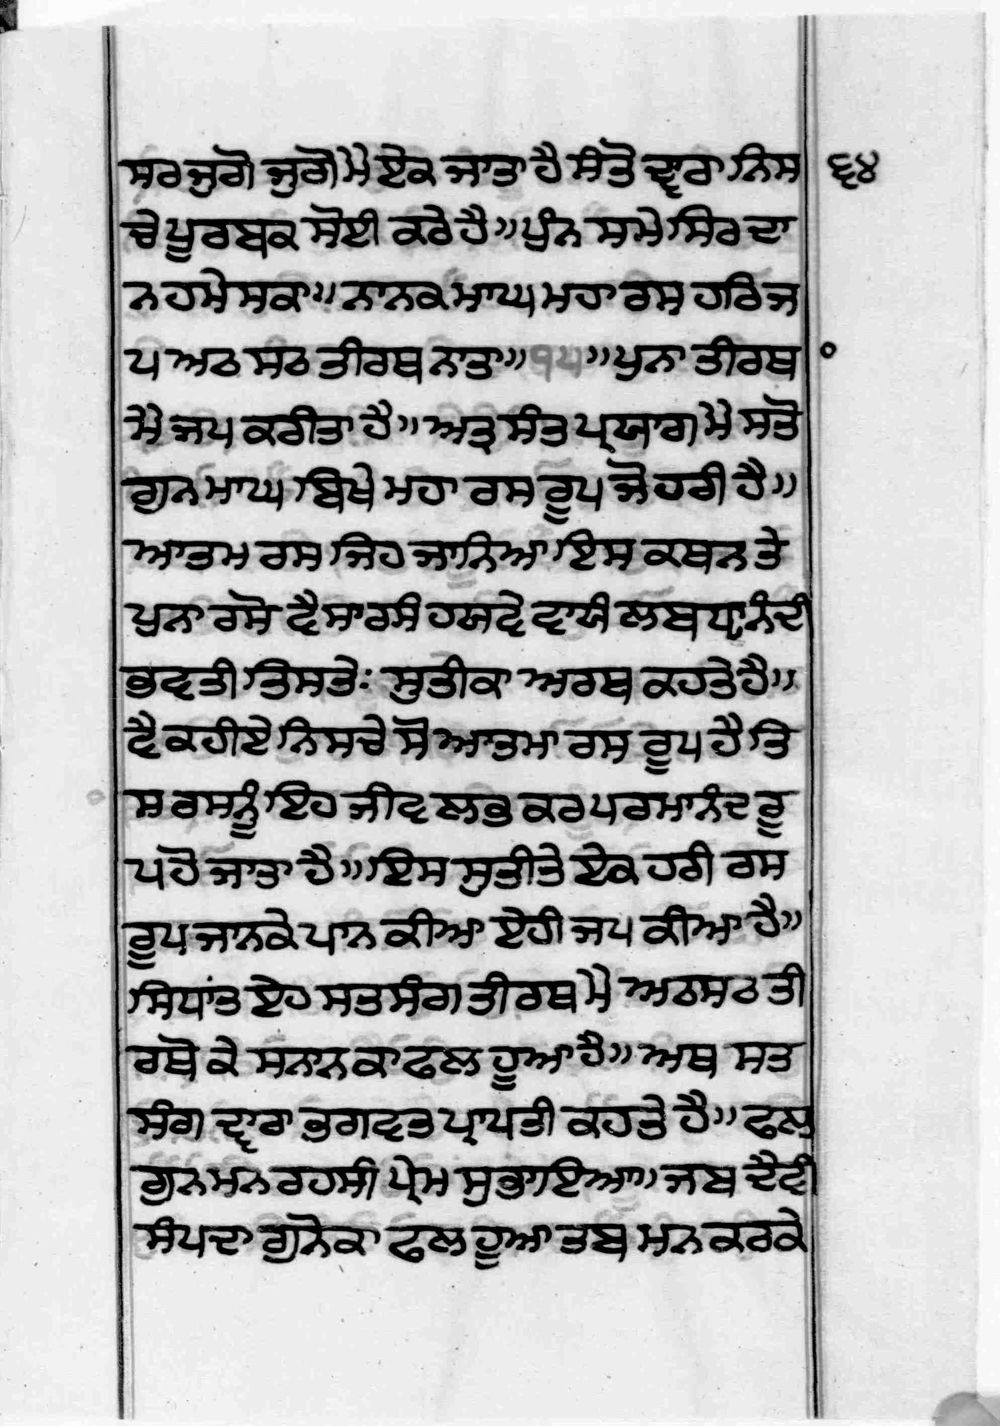 ਸਰ ਜੁਗੋ ਜੁਗੋ ਮੈ ਏਕ ਜਾਤਾ ਹੈ ਸੰਤੋ ਦ੍ਵਾਰਾ ਨਿਸ ੬੪
ਚੇ ਪੂਰਬਕ ਸੋਈ ਕਰੇ ਹੈ॥ ਪੁੰਨ ਸਮੇ ਸਿਰ ਦਾ
ਨ ਹਮੇਸਕਾ॥ ਨਾਨਕ ਮਾਘ ਮਹਾ ਰਸ ਹਰਿ ਜ
ਪ ਅਠ ਸਠ ਤੀਰਥ ਨਾਤਾ॥੧੫॥ ਪੁਨਾ ਤੀਰਥ
ਮੈ ਜਪ ਕਰੀਤਾ ਹੈ॥ ਅਤ੍ਰ ਸੰਤ ਪ੍ਰਯਾਗ ਮੇ ਸਤੋ
ਗੁਨ ਮਾਘ ਬਿਖੇ ਮਹਾ ਰਸ ਰੂਪ ਜੋ ਹਰੀ ਹੈ॥
ਆਤਮ ਰਸ ਜਿਹ ਜਾਨਿਆ ਇਸ ਕਥਨ ਤੇ
ਪੁਨਾ ਰਸੋ ਵੈ ਸਾ ਰਸੰ ਹਯਵੇ ਵਾਯੰ ਲਬਧ੍ਵਾਨੰਦੀ
ਭਵਤੀ ਤਿਸਤੇ: ਸ੍ਰੁਤੀ ਕਾ ਅਰਥ ਕਹਤੇ ਹੈ॥
ਵੈ ਕਹੀਏ ਨਿਸਚੇ ਸੋ ਆਤਮਾ ਰਸ ਰੂਪ ਹੈ ਤਿ
ਸ ਰਸ ਨੂੰ ਇਹ ਜੀਵ ਲਭ ਕਰ ਪਰਮਾਨੰਦ ਰੂ
ਪ ਹੋ ਜਾਤਾ ਹੈ॥ ਇਸ ਸ੍ਰੁਤੀ ਤੇ ਏਕ ਹਰੀ ਰਸ
ਰੂਪ ਜਾਨਕੇ ਪਾਨ ਕੀਆ ਏਹੀ ਜਪ ਕੀਆ ਹੈ॥
ਸਿਧਾਂਤ ਏਹ ਸਤ ਸੰਗ ਤੀਰਥ ਮੇ ਅਠਸਠ ਤੀ
ਰਥੋ ਕੇ ਸਨਾਨ ਕਾ ਫਲ ਹੂਆ ਹੈ॥ ਅਥ ਸਤ
ਸੰਗ ਦ੍ਵਾਰਾ ਭਗਵਤ ਪ੍ਰਾਪਤੀ ਕਹਤੇ ਹੈ॥ ਫਲ
ਗੁਨ ਮਨ ਰਹਸੀ ਪ੍ਰੇਮ ਸੁਭਾਇਆ॥ ਜਬ ਦੈਵੀ
ਸੰਪਦਾ ਗੁਨੋ ਕਾ ਫਲ ਹੂਆ ਤਬ ਮਨ ਕਰਕੇ